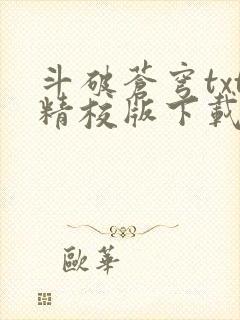 斗破蒼穹txt
精校版下載
歐華